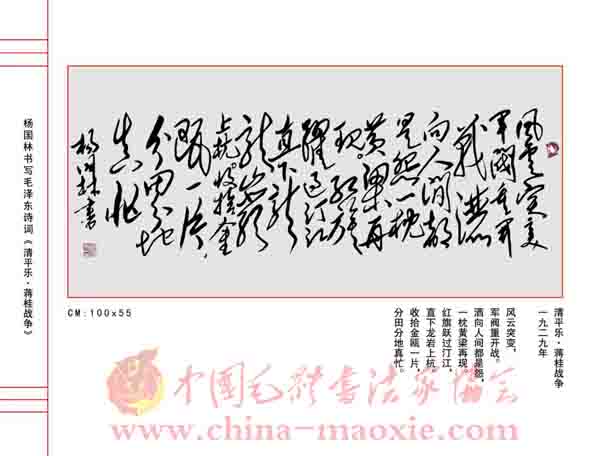 杨国林书写毛泽东诗词《清平乐·蒋桂战争》
风云突变
军阀重开
战洒
向人间都
是怨一枕
黄粱再
现。红旗
跃过汀江
直下龙
岩
上杭。收拾金
瓯一片，
分田分地
真忙
杨国林书
CM:100x55
清平乐·蒋桂战争
一九二九年
风云突变，
军阀重开战。
洒向人间都是怨，
一枕黄梁再现
红旗跃过汀江，
直下龙岩上杭，
收拾金瓯一片，
分田分地真忙。
中国毛体书法家协会
www.china-maoxie.com